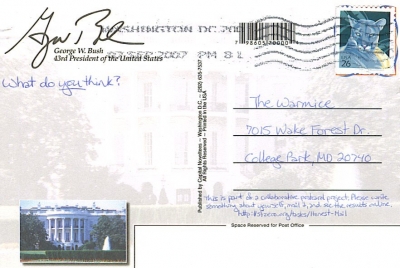 WASHINGTON DC 200
02 SEP 2007 PM 8 L
George W. Bush
43rd President of the United States
What do you think?
26
The Warmice
7015 Wake Forest Dr.
College Park, MD 20740
This is part of a collaborative postcard project. Please write
something about yourself, mail it, and see the results online.
Space Reserved for Post Office
Published by Capitol Novelties – Washington D.C. –
All Rights Reserved – Printed in the USA